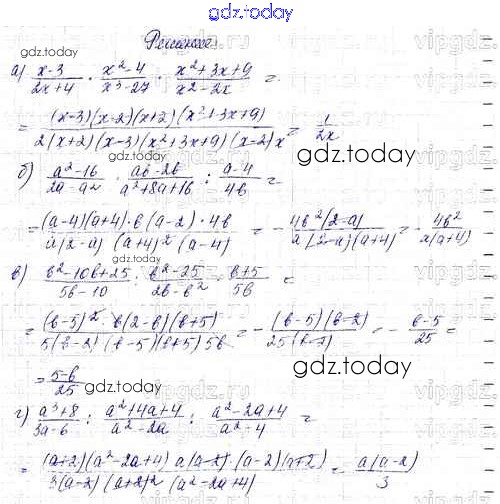 gdz.today
Решение
gdz.today
а) (x-3)/(2x+4) · (x²-4)/(x³-27) · (x²+3x+9)/(x²-2x) =
= (x-3)(x-2)(x+2)(x²+3x+9) / 2(x+2)(x-3)(x²+3x+9)(x-2)x = 1/2x
gdz.today
б) (a²-16)/(2a-a²) · (ab-2b)/(a²+8a+16) : (a-4)/4b =
gdz.today
= (a-4)(a+4)·b(a-2)·4b / a(2-a)(a+4)²(a-4) = - 4b²(2-a) / a(2-a)(a+4) = - 4b² / a(a+4)
gdz.today
в) (b²-10b+25)/(5b-10) : (b²-25)/(2b-b²) · (b+5)/5b =
= (b-5)²·b(2-b)(b+5) / 5(b-2)(b-5)(b+5)5b = - (b-5)(b-2) / 25(b-2) = - (b-5)/25 =
= (5-b)/25
gdz.today
г) (a³+8)/(3a-6) : (a²+4a+4)/(a²-2a) : (a²-2a+4)/(a²-4) =
= (a+2)(a²-2a+4)a(a-2)(a-2)(a+2) / 3(a-2)(a+2)²(a²-2a+4) = a(a-2)/3
gdz.today